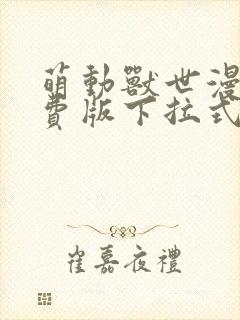 萌動獸世漫
費版下拉式
崔嘉夜禮